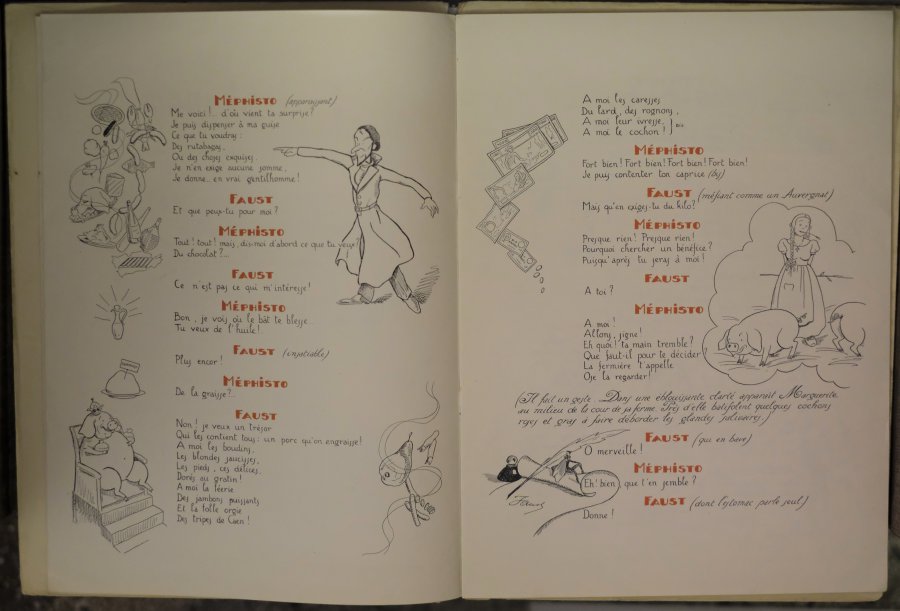 Méphisto (apparaissant)
Me voici !.. d'où vient ta surprise ?
Je puis dispenser à ma guise
Ce que tu voudras :
Des rutabagas,
Ou des choses exquises.
Je n'en exige aucune somme,
Je donne.. en vrai gentilhomme !
Faust
Et que peux-tu pour moi ?
Méphisto
Tout ! tout ! mais, dis-moi d'abord ce que tu veux !
Du chocolat ?...
Faust
Ce n'est pas ce qui m'intéresse !
Méphisto
Bon, je vois où le bât te blesse...
Tu veux de l'huile !..
Faust (insatiable)
Plus encor !
Méphisto
De la graisse ?..
Faust
Non ! je veux un trésor
Qui les contient tous : un porc qu'on engraisse !
A moi les boudins,
Les blondes saucisses,
Les pieds, ces délices,
Dorés au gratin !
A moi la féerie
Des jambons puissants
Et la folle orgie
Des tripes de Caen !
A moi les caresses
Du lard, des rognons,
A moi leur ivresse, } bis
A moi le cochon !
Méphisto
Fort bien ! Fort bien ! Fort bien ! Fort bien !
Je puis contenter ton caprice (bis)
Faust (méfiant comme un Auvergnat)
Mais qu'en exiges-tu du kilo ?
Méphisto
Presque rien ! Presque rien !
Pourquoi chercher un bénéfice ?
Puisqu'après tu seras à moi !
Faust
A toi ?
Méphisto
A moi !
Allons, signe !
Eh quoi ! ta main tremble ?
Que faut-il pour te décider ?
La fermière t'appelle
Ose la regarder !
(Il fait un geste. Dans une éblouissante clarté apparaît Marguerite
au milieu de la cour de sa ferme. Près d'elle batifolent quelques cochons
roses et gras à faire déborder les glandes salivaires.)
Faust (qui en bave)
O merveille !
Méphisto
Eh ! bien que t'en semble ?
Faust (dont l'estomac parle seul)
Donne !
Faust